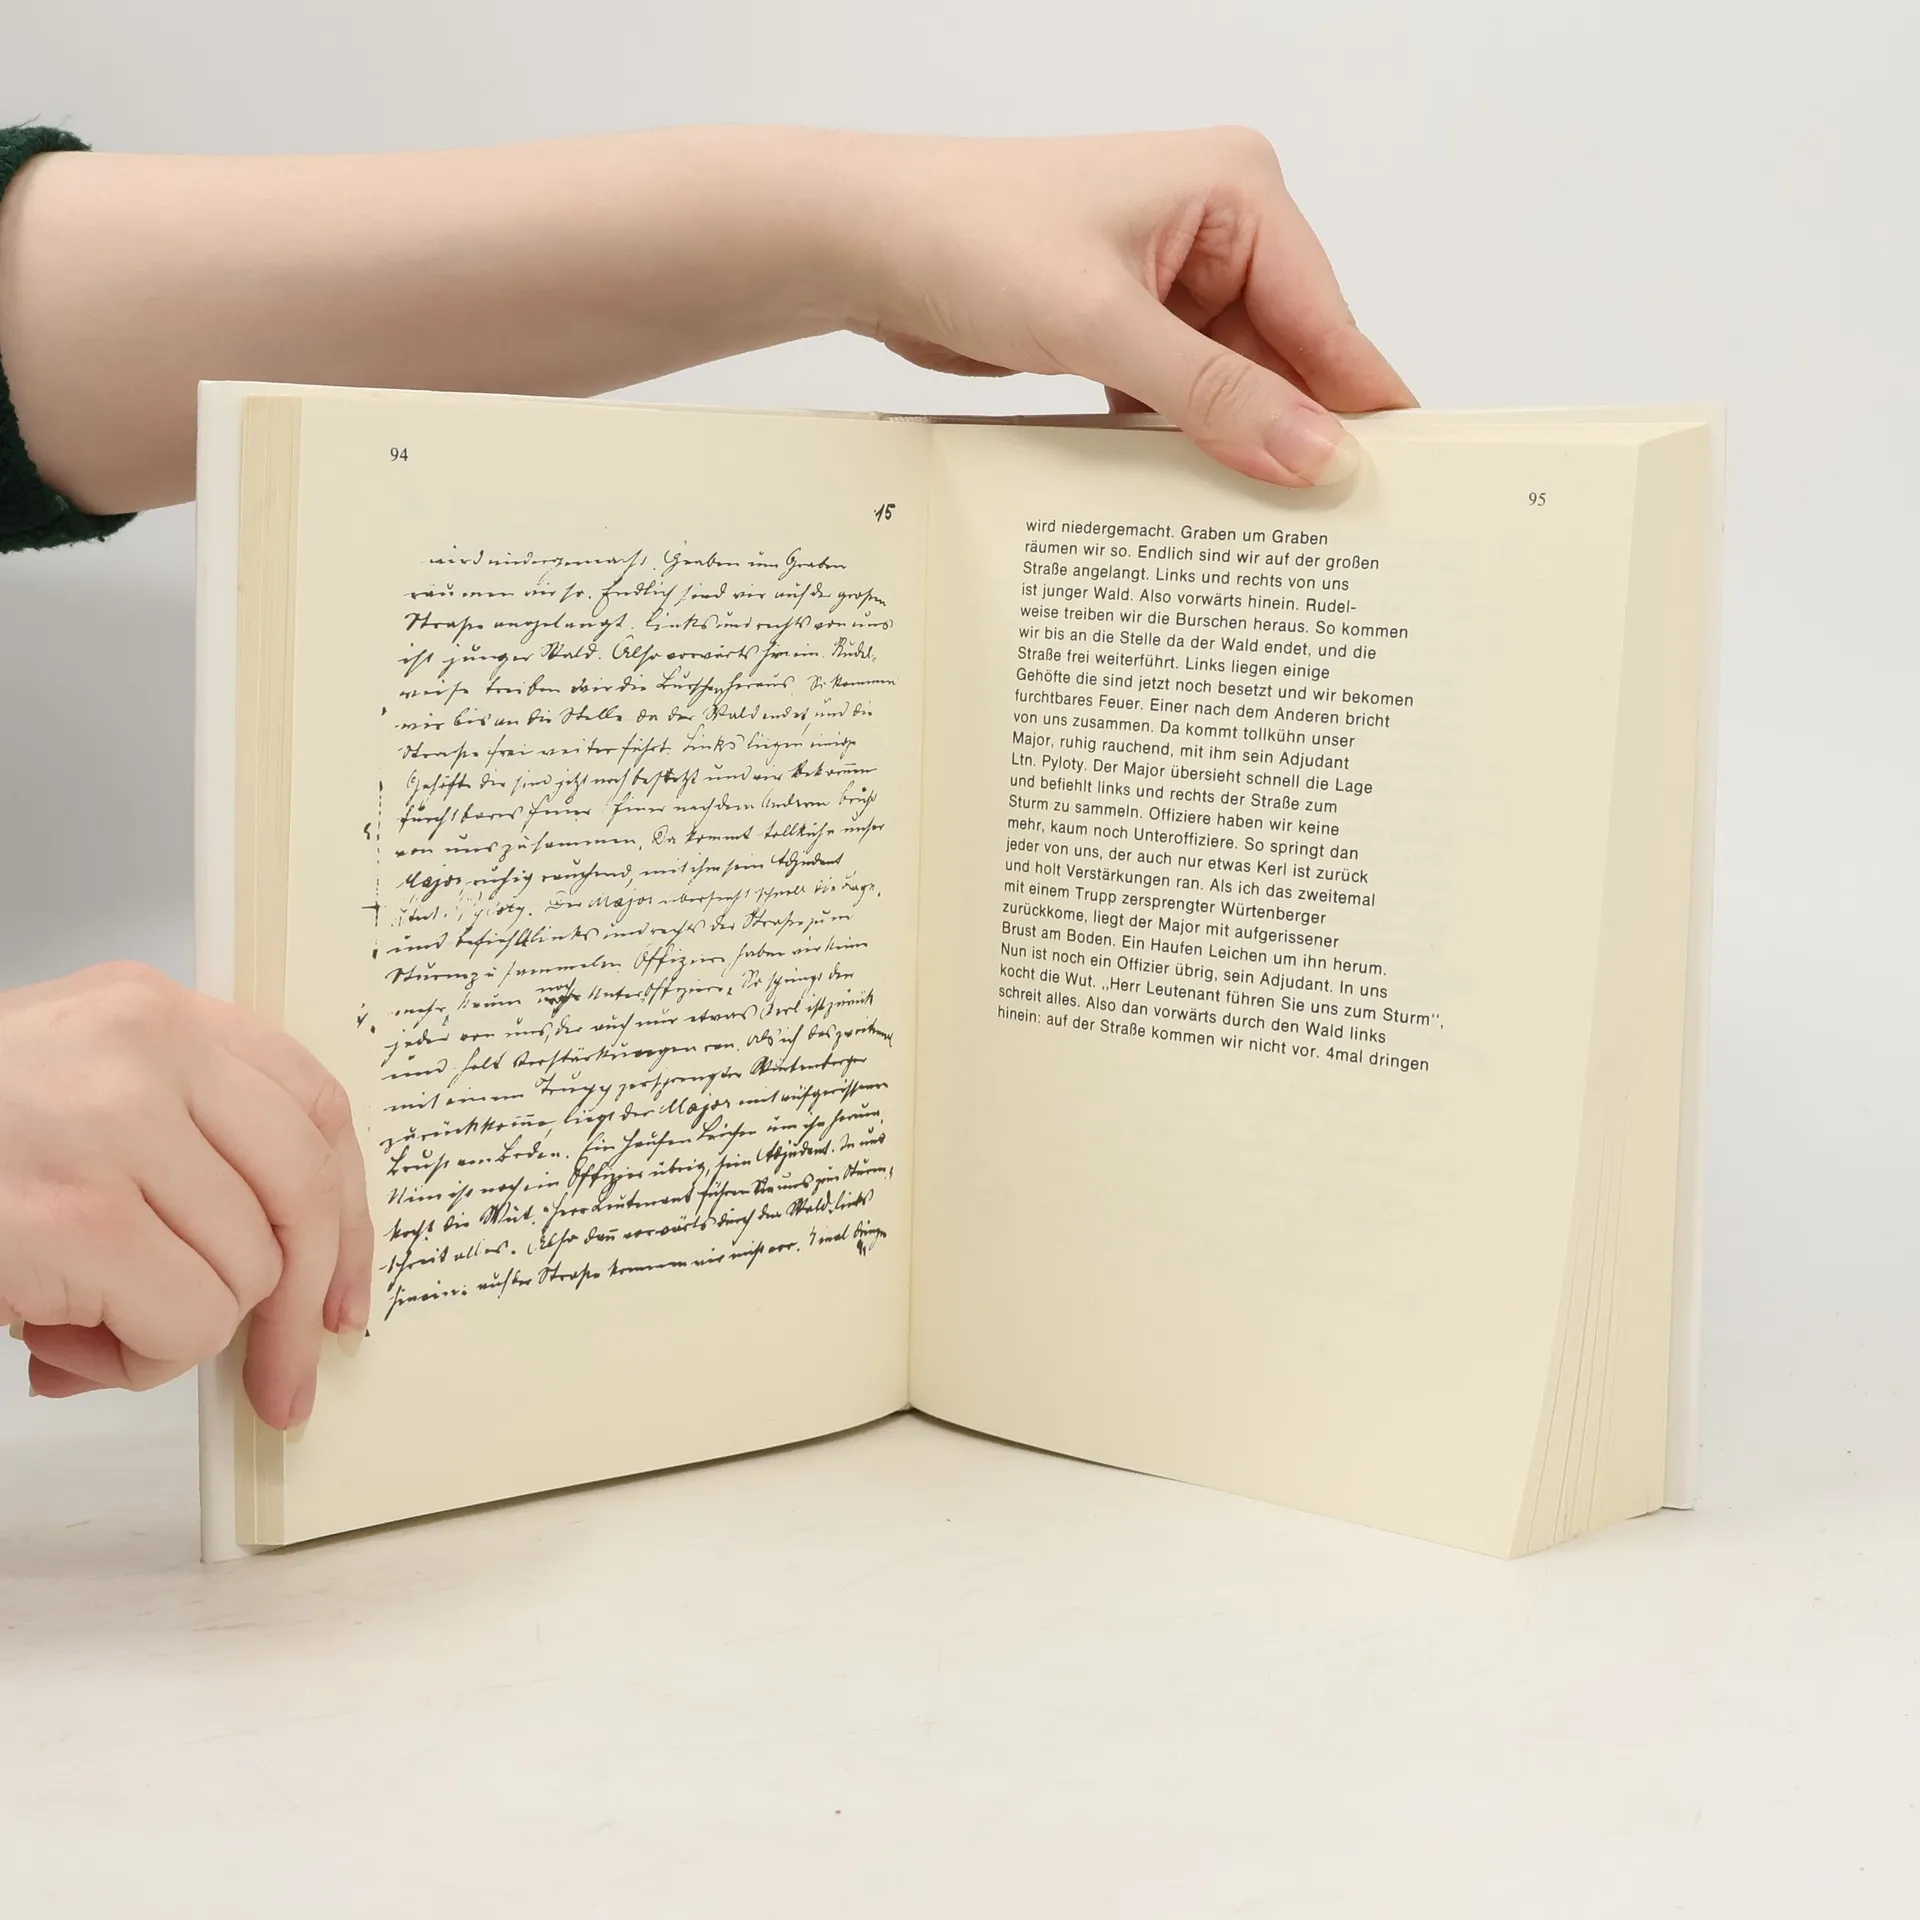 94
15
wird niedergemacht. Graben um Graben
räumen wir so. Endlich sind wir auf der großen
Straße angelangt. Links und rechts von uns
ist junger Wald. Also vorwärts hinein. Rudel-
weise treiben wir die Burschen heraus. So kommen
wir bis an die Stelle da der Wald endet, und die
Straße frei weiter führt. Links liegen einige
Gehöfte die sind jetzt noch besetzt und wir bekommen
furchtbares Feuer. Einer nach dem Anderen bricht
von uns zusammen. Da kommt tollkühn unser
Major ruhig rauchend, mit ihm sein Adjudant
Ltnt. Pyloty. Der Major übersieht schnell die Lage,
und befiehlt links und rechts der Straße zum
Sturm zu sammeln. Offiziere haben wir keine
mehr, kaum noch Unteroffiziere. So springt den
jeder von uns, der auch nur etwas Kerl ist zurück
und holt Verstärkungen ran. Als ich das zweitemal
mit einem Trupp zersprengter Würtenberger
zurückkom̄e, liegt der Major mit aufgerissener
Brust am Boden. Ein Haufen Leichen um ihn herum.
Nun ist noch ein Offizier übrig, sein Adjudant. In uns
kocht die Wut. „Herr Leutenant führen Sie uns zum Sturm“,
schreit alles. Also dan̄ vorwärts durch den Wald links
hinein: auf der Straße kommen wir nicht vor. 4 mal dringen
95
wird niedergemacht. Graben um Graben
räumen wir so. Endlich sind wir auf der großen
Straße angelangt. Links und rechts von uns
ist junger Wald. Also vorwärts hinein. Rudel-
weise treiben wir die Burschen heraus. So kommen
wir bis an die Stelle da der Wald endet, und die
Straße frei weiterführt. Links liegen einige
Gehöfte die sind jetzt noch besetzt und wir bekomen
furchtbares Feuer. Einer nach dem Anderen bricht
von uns zusammen. Da kommt tollkühn unser
Major, ruhig rauchend, mit ihm sein Adjudant
Ltn. Pyloty. Der Major übersieht schnell die Lage
und befiehlt links und rechts der Straße zum
Sturm zu sammeln. Offiziere haben wir keine
mehr, kaum noch Unteroffiziere. So springt dan
jeder von uns, der auch nur etwas Kerl ist zurück
und holt Verstärkungen ran. Als ich das zweitemal
mit einem Trupp zersprengter Würtenberger
zurückkome, liegt der Major mit aufgerissener
Brust am Boden. Ein Haufen Leichen um ihn herum.
Nun ist noch ein Offizier übrig, sein Adjudant. In uns
kocht die Wut. „Herr Leutenant führen Sie uns zum Sturm“,
schreit alles. Also dan vorwärts durch den Wald links
hinein: auf der Straße kommen wir nicht vor. 4mal dringen